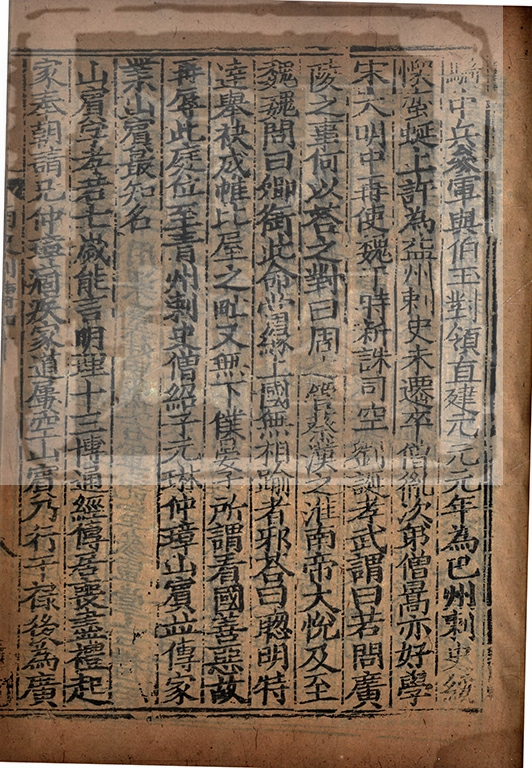 驕中兵叅軍與伯玉對領直建元元年為巴州刺史綏
懷蠻蜒上許為益州刺史未遷卒僧胤次弟僧暠亦好學
宋大明中再使魏于時新誅司空劉誕孝武謂曰若問廣
陵之事何以荅之對曰周之管蔡漢之淮南帝大悅及至
魏魏問曰卿銜此命當縁上國無相踰者邪荅曰聦明特
逹舉袂成帷比屋之甿又無下僕晏子所謂看國善惡故
再辱此庭位至青州刺史僧紹子元琳仲璋山賔並傳家
業山賔最知名
山賔字孝若七嵗能言明理十三博通經傳居喪盡禮起
家奉朝請兄仲璋痼疾家道屢空山賔乃行干禄後為廣